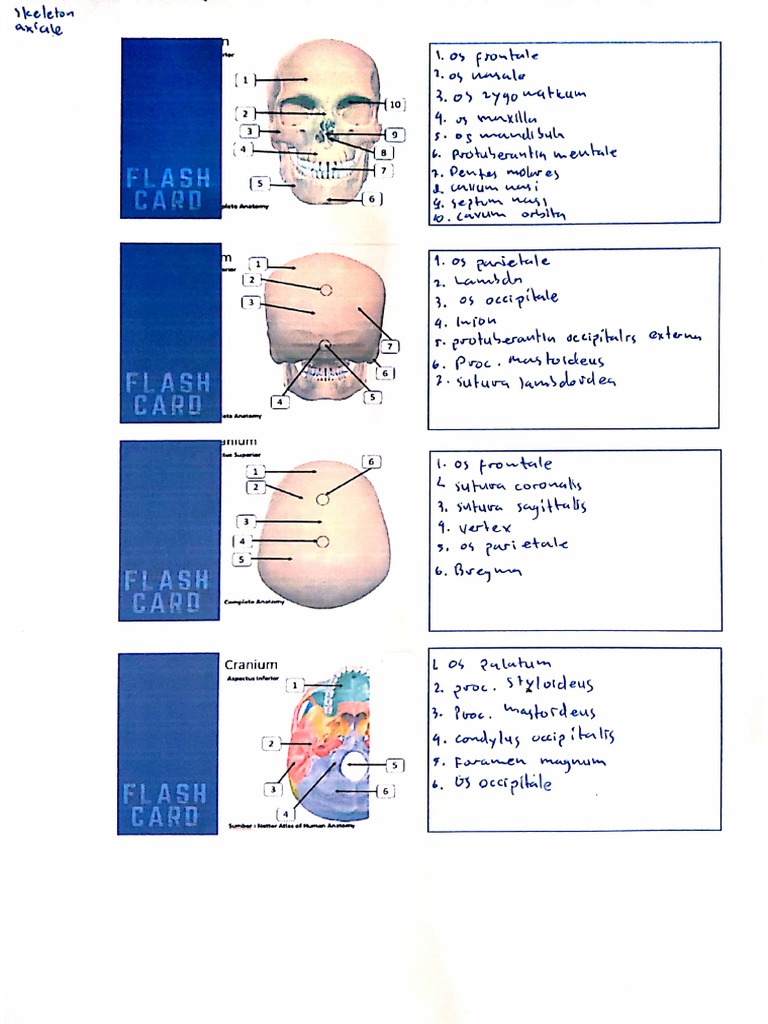 skeleton
axiale
1
2
3
4
5
6
7
8
9
10
FLASH
CARD
plete Anatomy
1. os frontale
2. os nasale
3. os zygomaticum
4. os maxilla
5. os mandibula
6. Protuberantia mentale
7. Dentes molares
8. cavum nasi
9. septum nasi
10. cavum orbita
1
2
3
4
5
6
7
FLASH
CARD
ete Anatomy
1. os parietale
2. Lambda
3. os occipitale
4. Inion
5. protuberantia occipitalis externa
6. Proc. mastoideus
7. sutura lambdoidea
anium
tus Superior
1
2
3
4
5
6
FLASH
CARD
Complete Anatomy
1. os frontale
2. sutura coronalis
3. sutura sagittalis
4. vertex
5. os parietale
6. Bregma
Cranium
Aspectus Inferior
1
2
3
4
5
6
FLASH
CARD
Sumber : Netter Atlas of Human Anatomy
1. os palatum
2. proc. styloideus
3. Proc. mastoideus
4. condylus occipitalis
5. Foramen magnum
6. Os occipitale